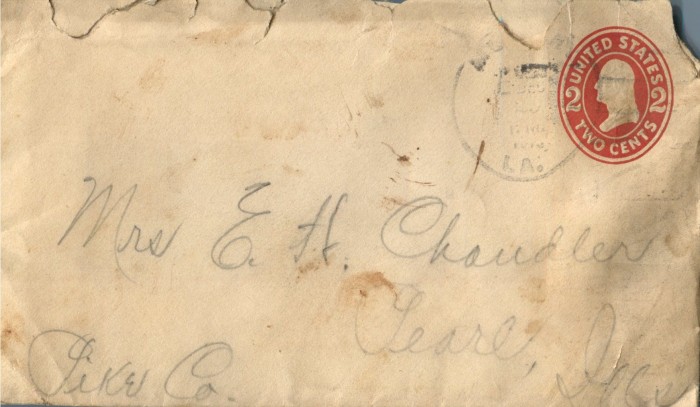 UNITED STATES
2 2
TWO CENTS
LA.
Mrs E. H. Chandler
Pearl, Ills
Pike Co.